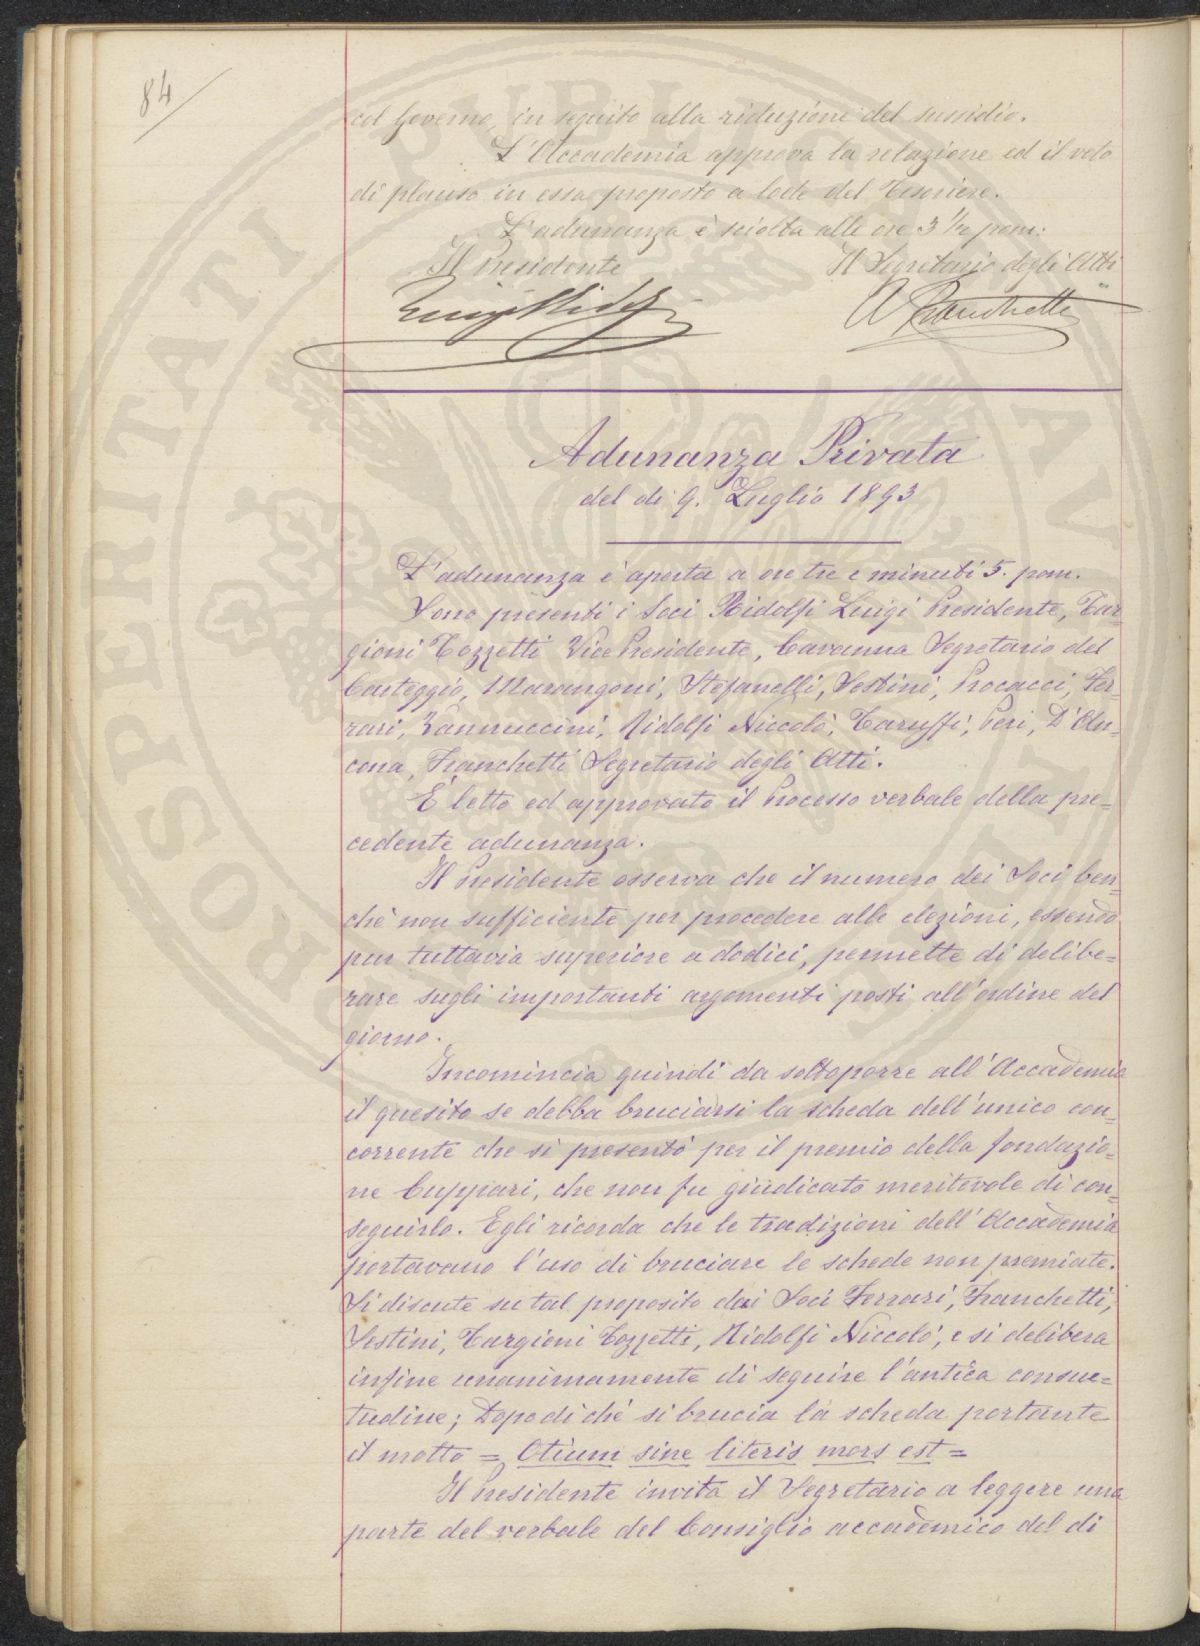 84
col Governo, in seguito alla riduzione del sussidio.
L'Accademia approva la relazione ed il voto
di plauso in essa proposto a lode del Tesoriere.
L'adunanza è sciolta alle ore 3 1/2 pom:
Il Presidente Il Segretario degli Atti
Luigi Ridolfi A Franchetti
Adunanza Privata
del dì 9. Luglio 1893
L'adunanza è aperta a ore tre e minuti 5. pom.
Sono presenti i Soci Ridolfi Luigi Presidente, Tar-
gioni Tozzetti Vice Presidente, Cavanna Segretario del
Carteggio, Marangoni, Stefanelli, Sestini, Procacci, Fer-
rari, Vannuccini, Ridolfi Niccolò, Taruffi, Peri, D'An-
cona, Franchetti Segretario degli Atti.
È letto ed approvato il Processo verbale della pre=
cedente adunanza.
Il Presidente osserva che il numero dei Soci ben-
chè non sufficiente per procedere alle elezioni, essendo
pur tuttavia superiore a dodici, permette di delibe=
rare sugli importanti argomenti posti all'ordine del
giorno.
Incomincia quindi da sottoporre all'Accademia
il quesito se debba bruciarsi la scheda dell'unico con-
corrente che si presentò per il premio della fondazio-
ne Cuppari, che non fu giudicato meritevole di con-
seguirlo. Egli ricorda che le tradizioni dell'Accademia
portavano l'uso di bruciare le schede non premiate.
Si discute su tal proposito dai Soci Ferrari, Franchetti,
Sestini, Targioni Tozzetti, Ridolfi Niccolò, e si delibera
infine unanimamente di seguire l'antica consue=
tudine; Dopo di chè si brucia la scheda portante
il motto = Otium sine literis mors est =
Il Presidente invita il Segretario a leggere una
parte del verbale del Consiglio accademico del dì
PROSPERITATI PUBLICAE AUGENDAE